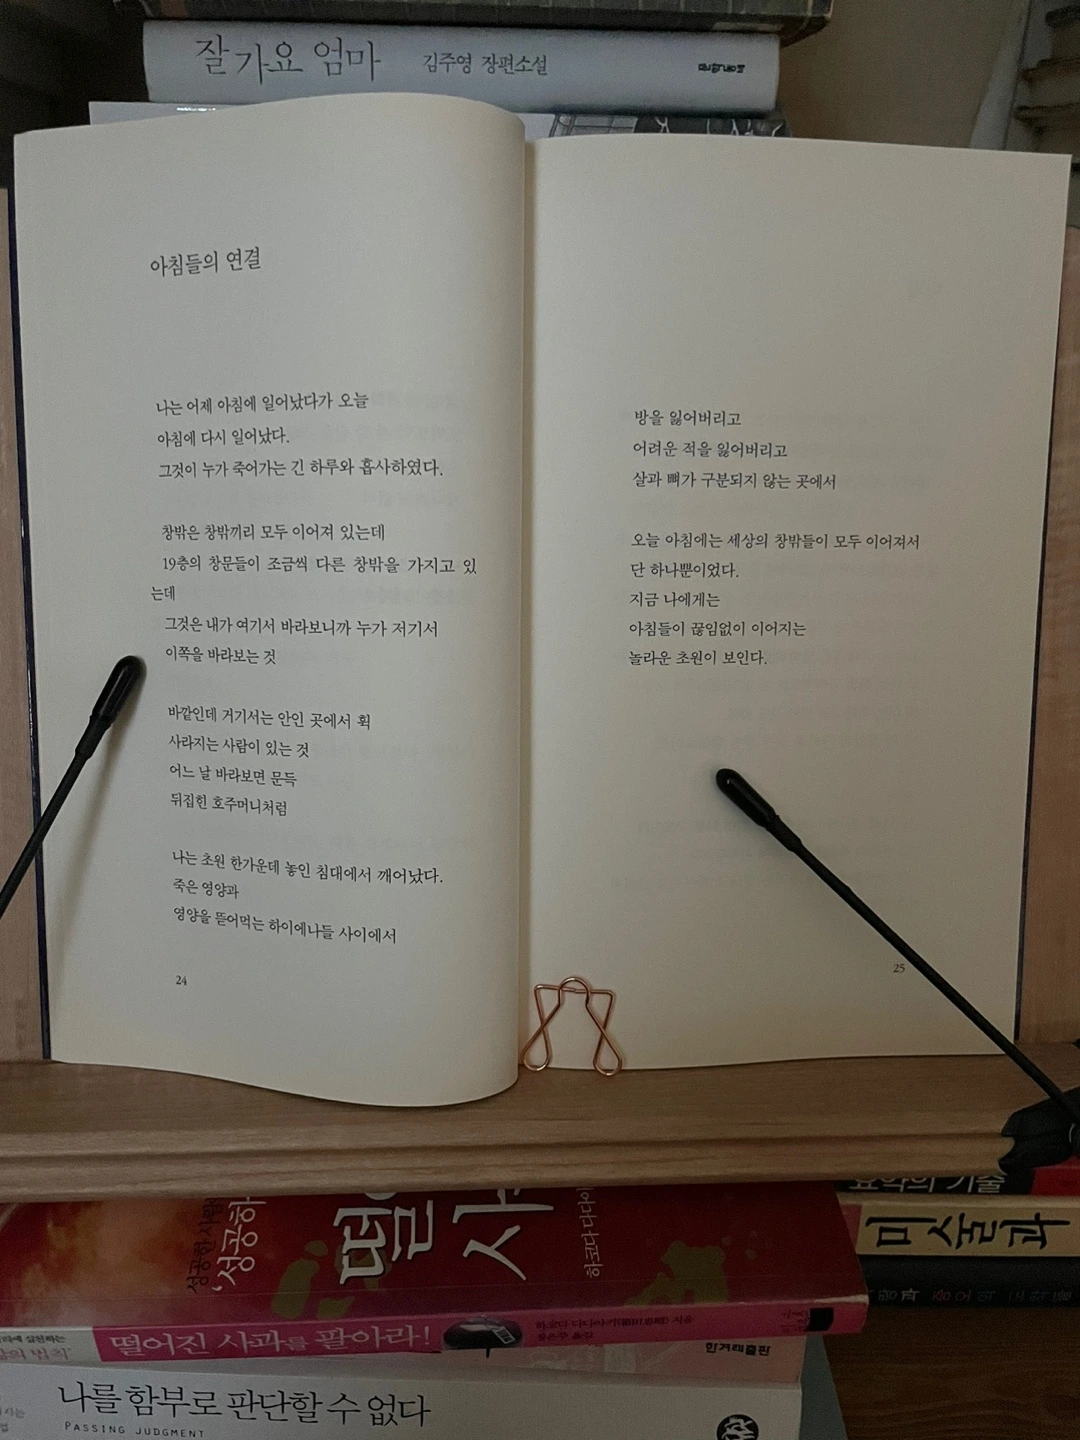 잘가요 엄마 김주영 장편소설
아침들의 연결
나는 어제 아침에 일어났다가 오늘
아침에 다시 일어났다.
그것이 누가 죽어가는 긴 하루와 흡사하였다.
창밖은 창밖끼리 모두 이어져 있는데
19층의 창문들이 조금씩 다른 창밖을 가지고 있
는데
그것은 내가 여기서 바라보니까 누가 저기서
이쪽을 바라보는 것
바깥인데 거기서는 안인 곳에서 휙
사라지는 사람이 있는 것
어느 날 바라보면 문득
뒤집힌 호주머니처럼
나는 초원 한가운데 놓인 침대에서 깨어났다.
죽은 영양과
영양을 뜯어먹는 하이에나들 사이에서
24
방을 잃어버리고
어려운 적을 잃어버리고
살과 뼈가 구분되지 않는 곳에서
오늘 아침에는 세상의 창밖들이 모두 이어져서
단 하나뿐이었다.
지금 나에게는
아침들이 끊임없이 이어지는
놀라운 초원이 보인다.
25
요약의 기술
미술과
성공한 사람
'성공하
떨
사
하코다 다다아
떨어진 사과를 팔아라!
한겨레출판
나를 함부로 판단할 수 없다
PASSING JUDGMENT